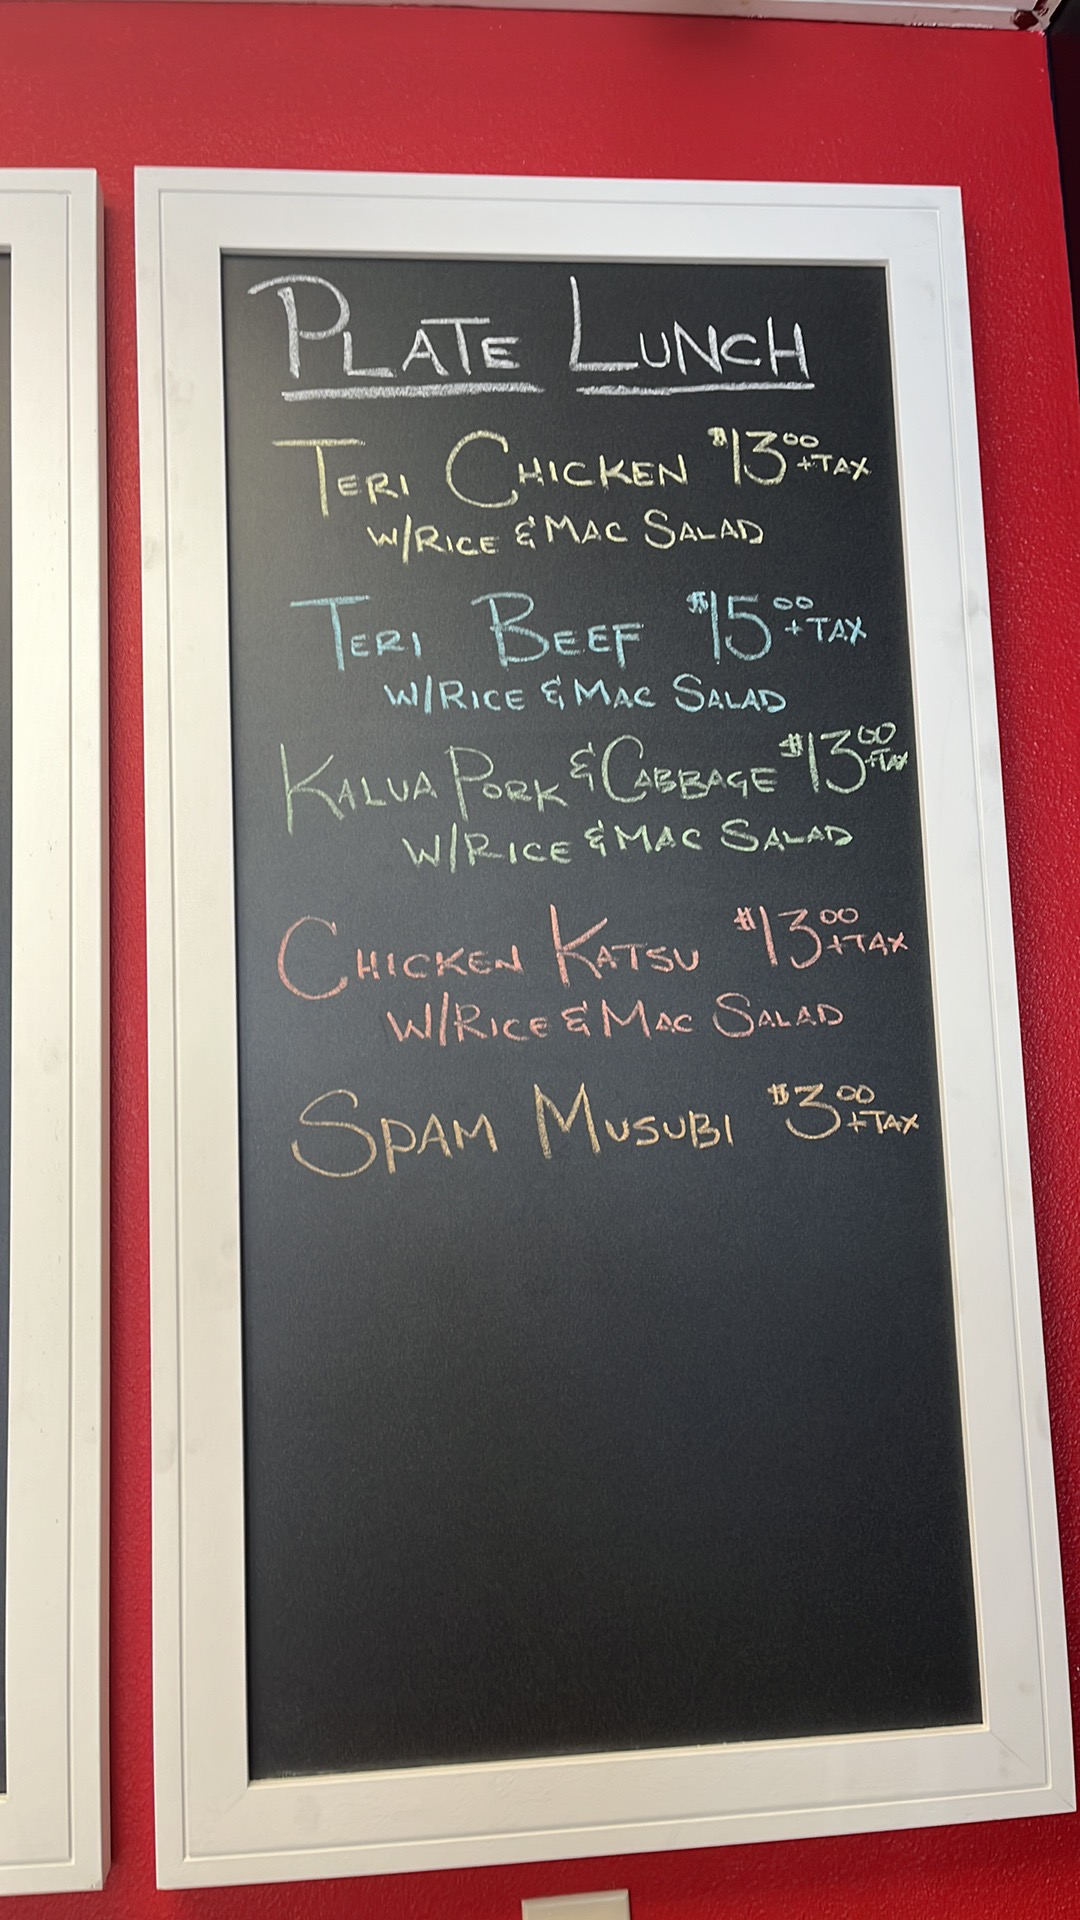 PLATE LUNCH
TERI CHICKEN $13.00 +TAX
W/RICE & MAC SALAD
TERI BEEF $15.00 +TAX
W/RICE & MAC SALAD
KALUA PORK & CABBAGE $13.00 +TAX
W/RICE & MAC SALAD
CHICKEN KATSU $13.00 +TAX
W/RICE & MAC SALAD
SPAM MUSUBI $3.00 +TAX